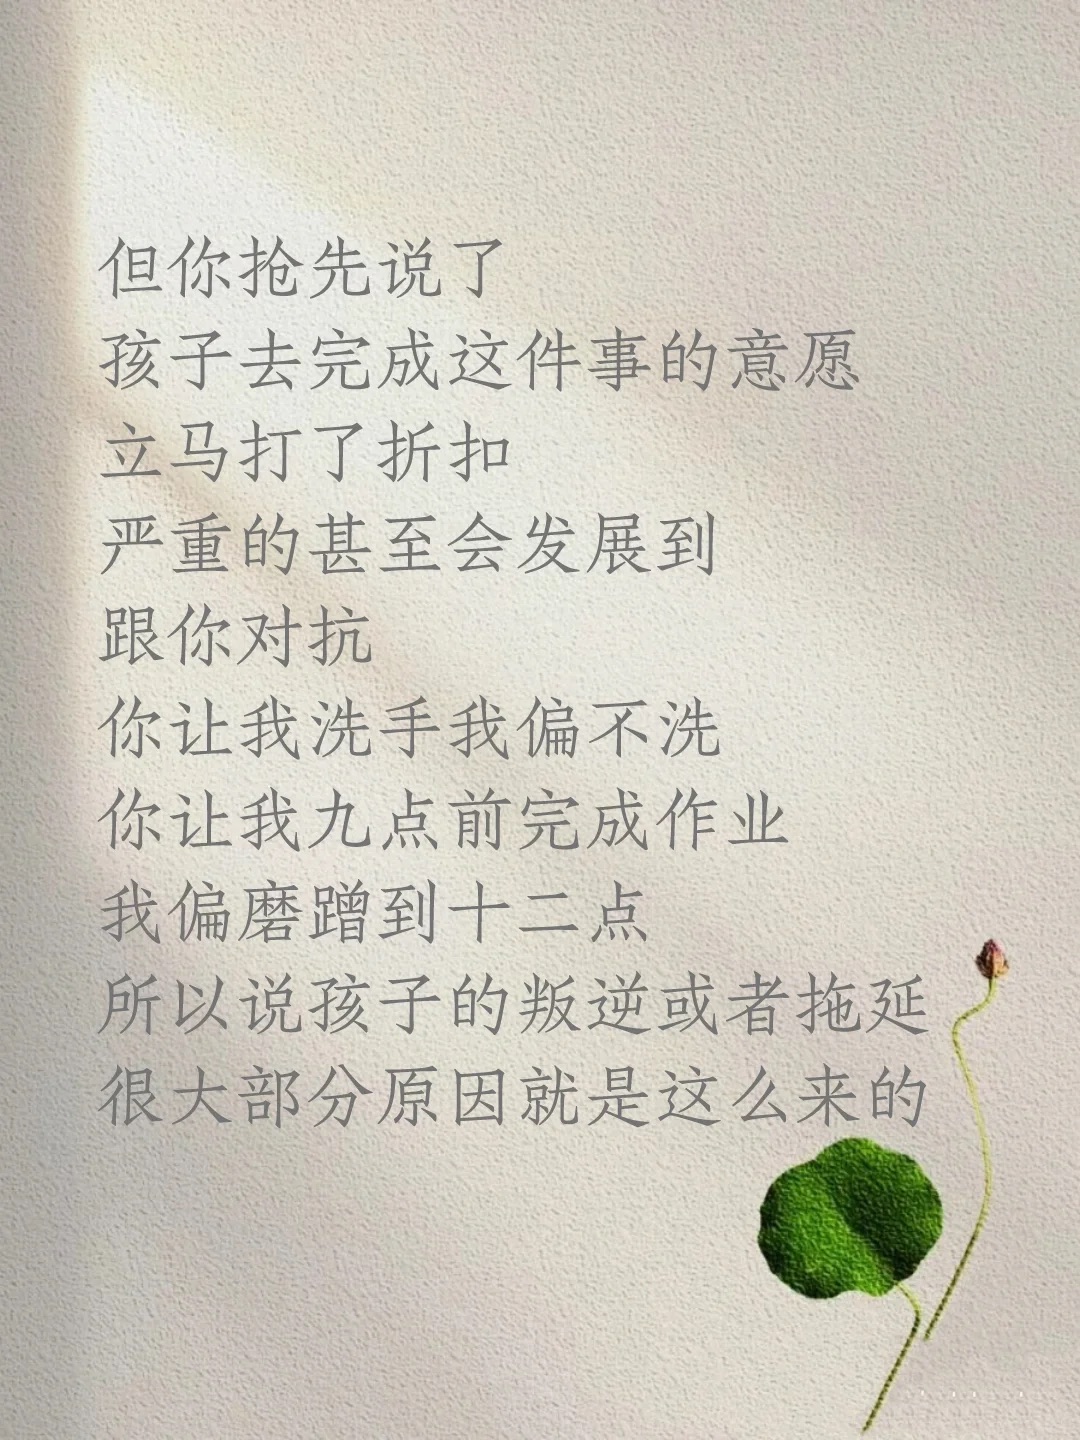 但你抢先说了
孩子去完成这件事的意愿
立马打了折扣
严重的甚至会发展到
跟你对抗
你让我洗手我偏不洗
你让我九点前完成作业
我偏磨蹭到十二点
所以说孩子的叛逆或者拖延
很大部分原因就是这么来的